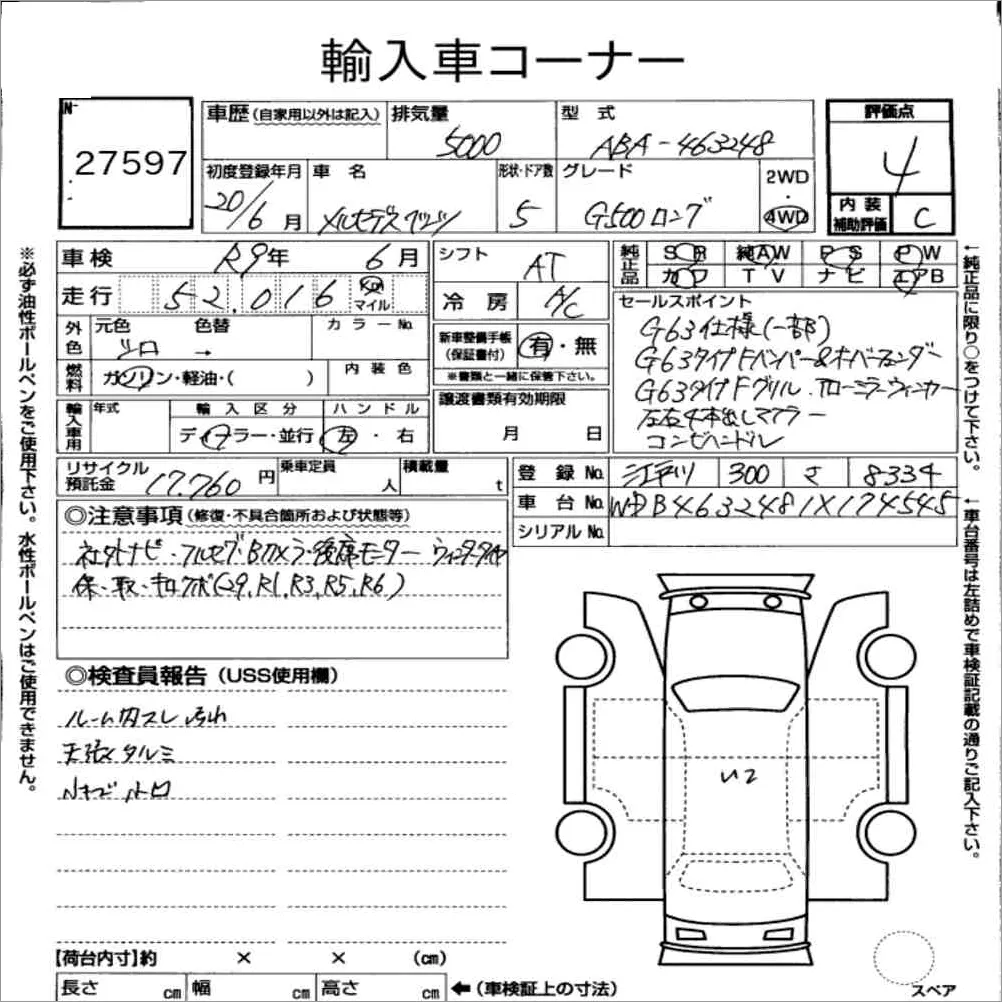 輸入車コーナー
№
27597
車歴 (自家用以外は記入)
排気量
5000
型 式
ABA-463248
評価点
4
内 装
補助評価
C
初度登録年月
20/6 月
車 名
メルセデスベンツ
形状・ドア数
5
グレード
G500ロング
2WD
4WD
車検
R9年 6月
走行
52,016 Km
マイル
外色
元色
色替
クロ
→
カラーNo.
燃料
ガソリン・軽油・( )
内 装 色
輸入車用
年式
輸 入 区 分
ディーラー・並行
ハ ン ド ル
左 ・ 右
シフト
AT
冷 房
A/C
新車整備手帳
(保証書付)
有・無
※書類と一緒に保管下さい。
譲渡書類有効期限
月 日
純正品
SR
純AW
PS
PW
カワ
TV
ナビ
エアB
セールスポイント
G63仕様(一部)
G63タイプFバンパー&オーバーフェンダー
G63タイプFグリル.アローミラーウィンカー
左右4本出しマフラー
コンビハンドル
リサイクル
預託金
17,760 円
乗車定員
人
積載量
t
登 録 No.
江戸川 300 さ 8334
車 台 No.
WDB4632481X174545
シリアル No.
◎注意事項 (修復・不具合箇所および状態等)
社外ナビ・フルセグ・Bカメラ・後席モニター ウィンタータイヤ
保・取・キロクボ(29,R1,R3,R5,R6)
◎検査員報告 (USS使用欄)
ルーム内スレ 汚れ
天張タルミ
小キズ 小凹
U2
【荷台内寸】約 × × (cm)
長さ cm
幅 cm
高さ cm
←(車検証上の寸法)
スペア
※必ず油性ボールペンをご使用下さい。水性ボールペンはご使用できません。
←純正品に限り○をつけて下さい。
←車台番号は左詰めで車検証記載の通りご記入下さい。